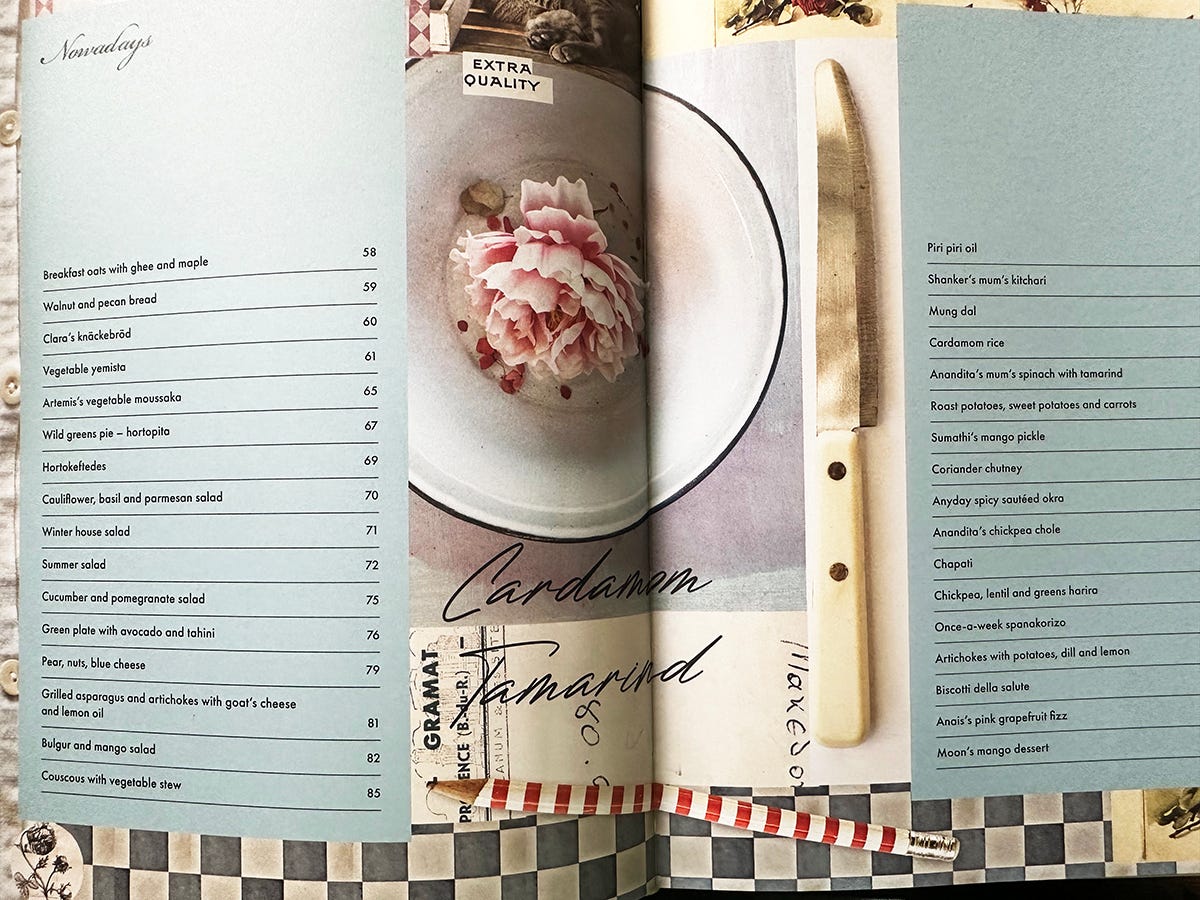 Nowadays
Breakfast oats with ghee and maple 58
Walnut and pecan bread 59
Clara's knäckebröd 60
Vegetable yemista 61
Artemis's vegetable moussaka 65
Wild greens pie – hortopita 67
Hortokeftedes 69
Cauliflower, basil and parmesan salad 70
Winter house salad 71
Summer salad 72
Cucumber and pomegranate salad 75
Green plate with avocado and tahini 76
Pear, nuts, blue cheese 79
Grilled asparagus and artichokes with goat's cheese
and lemon oil 81
Bulgur and mango salad 82
Couscous with vegetable stew 85
EXTRA
QUALITY
Cardamom
Tamarind
GRAMAT
(B.-du-R.)
Piri piri oil
Shanker's mum's kitchari
Mung dal
Cardamom rice
Anandita's mum's spinach with tamarind
Roast potatoes, sweet potatoes and carrots
Sumathi's mango pickle
Coriander chutney
Anyday spicy sautéed okra
Anandita's chickpea chole
Chapati
Chickpea, lentil and greens harira
Once-a-week spanakorizo
Artichokes with potatoes, dill and lemon
Biscotti della salute
Anais's pink grapefruit fizz
Moon's mango dessert